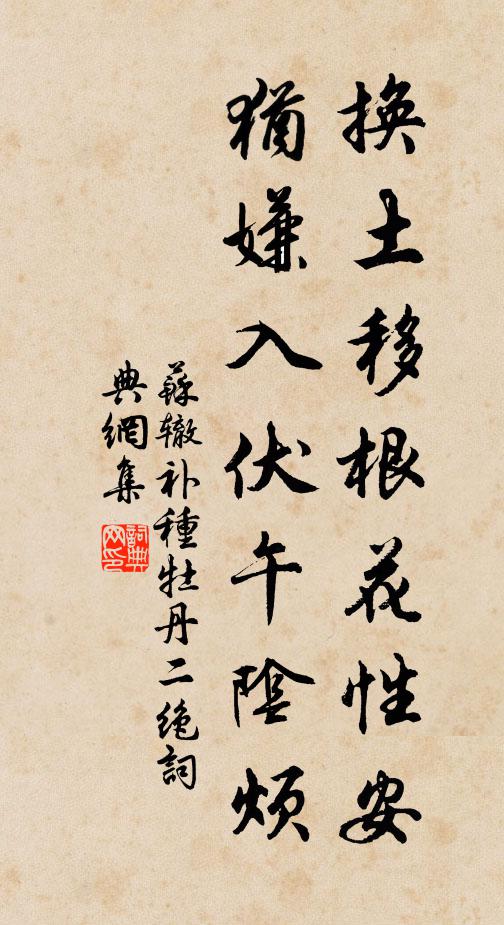 换土移根花性安
猶嫌入伏午陰煩
蘇辙补種牡丹二绝詞
典網集
詞典
网印